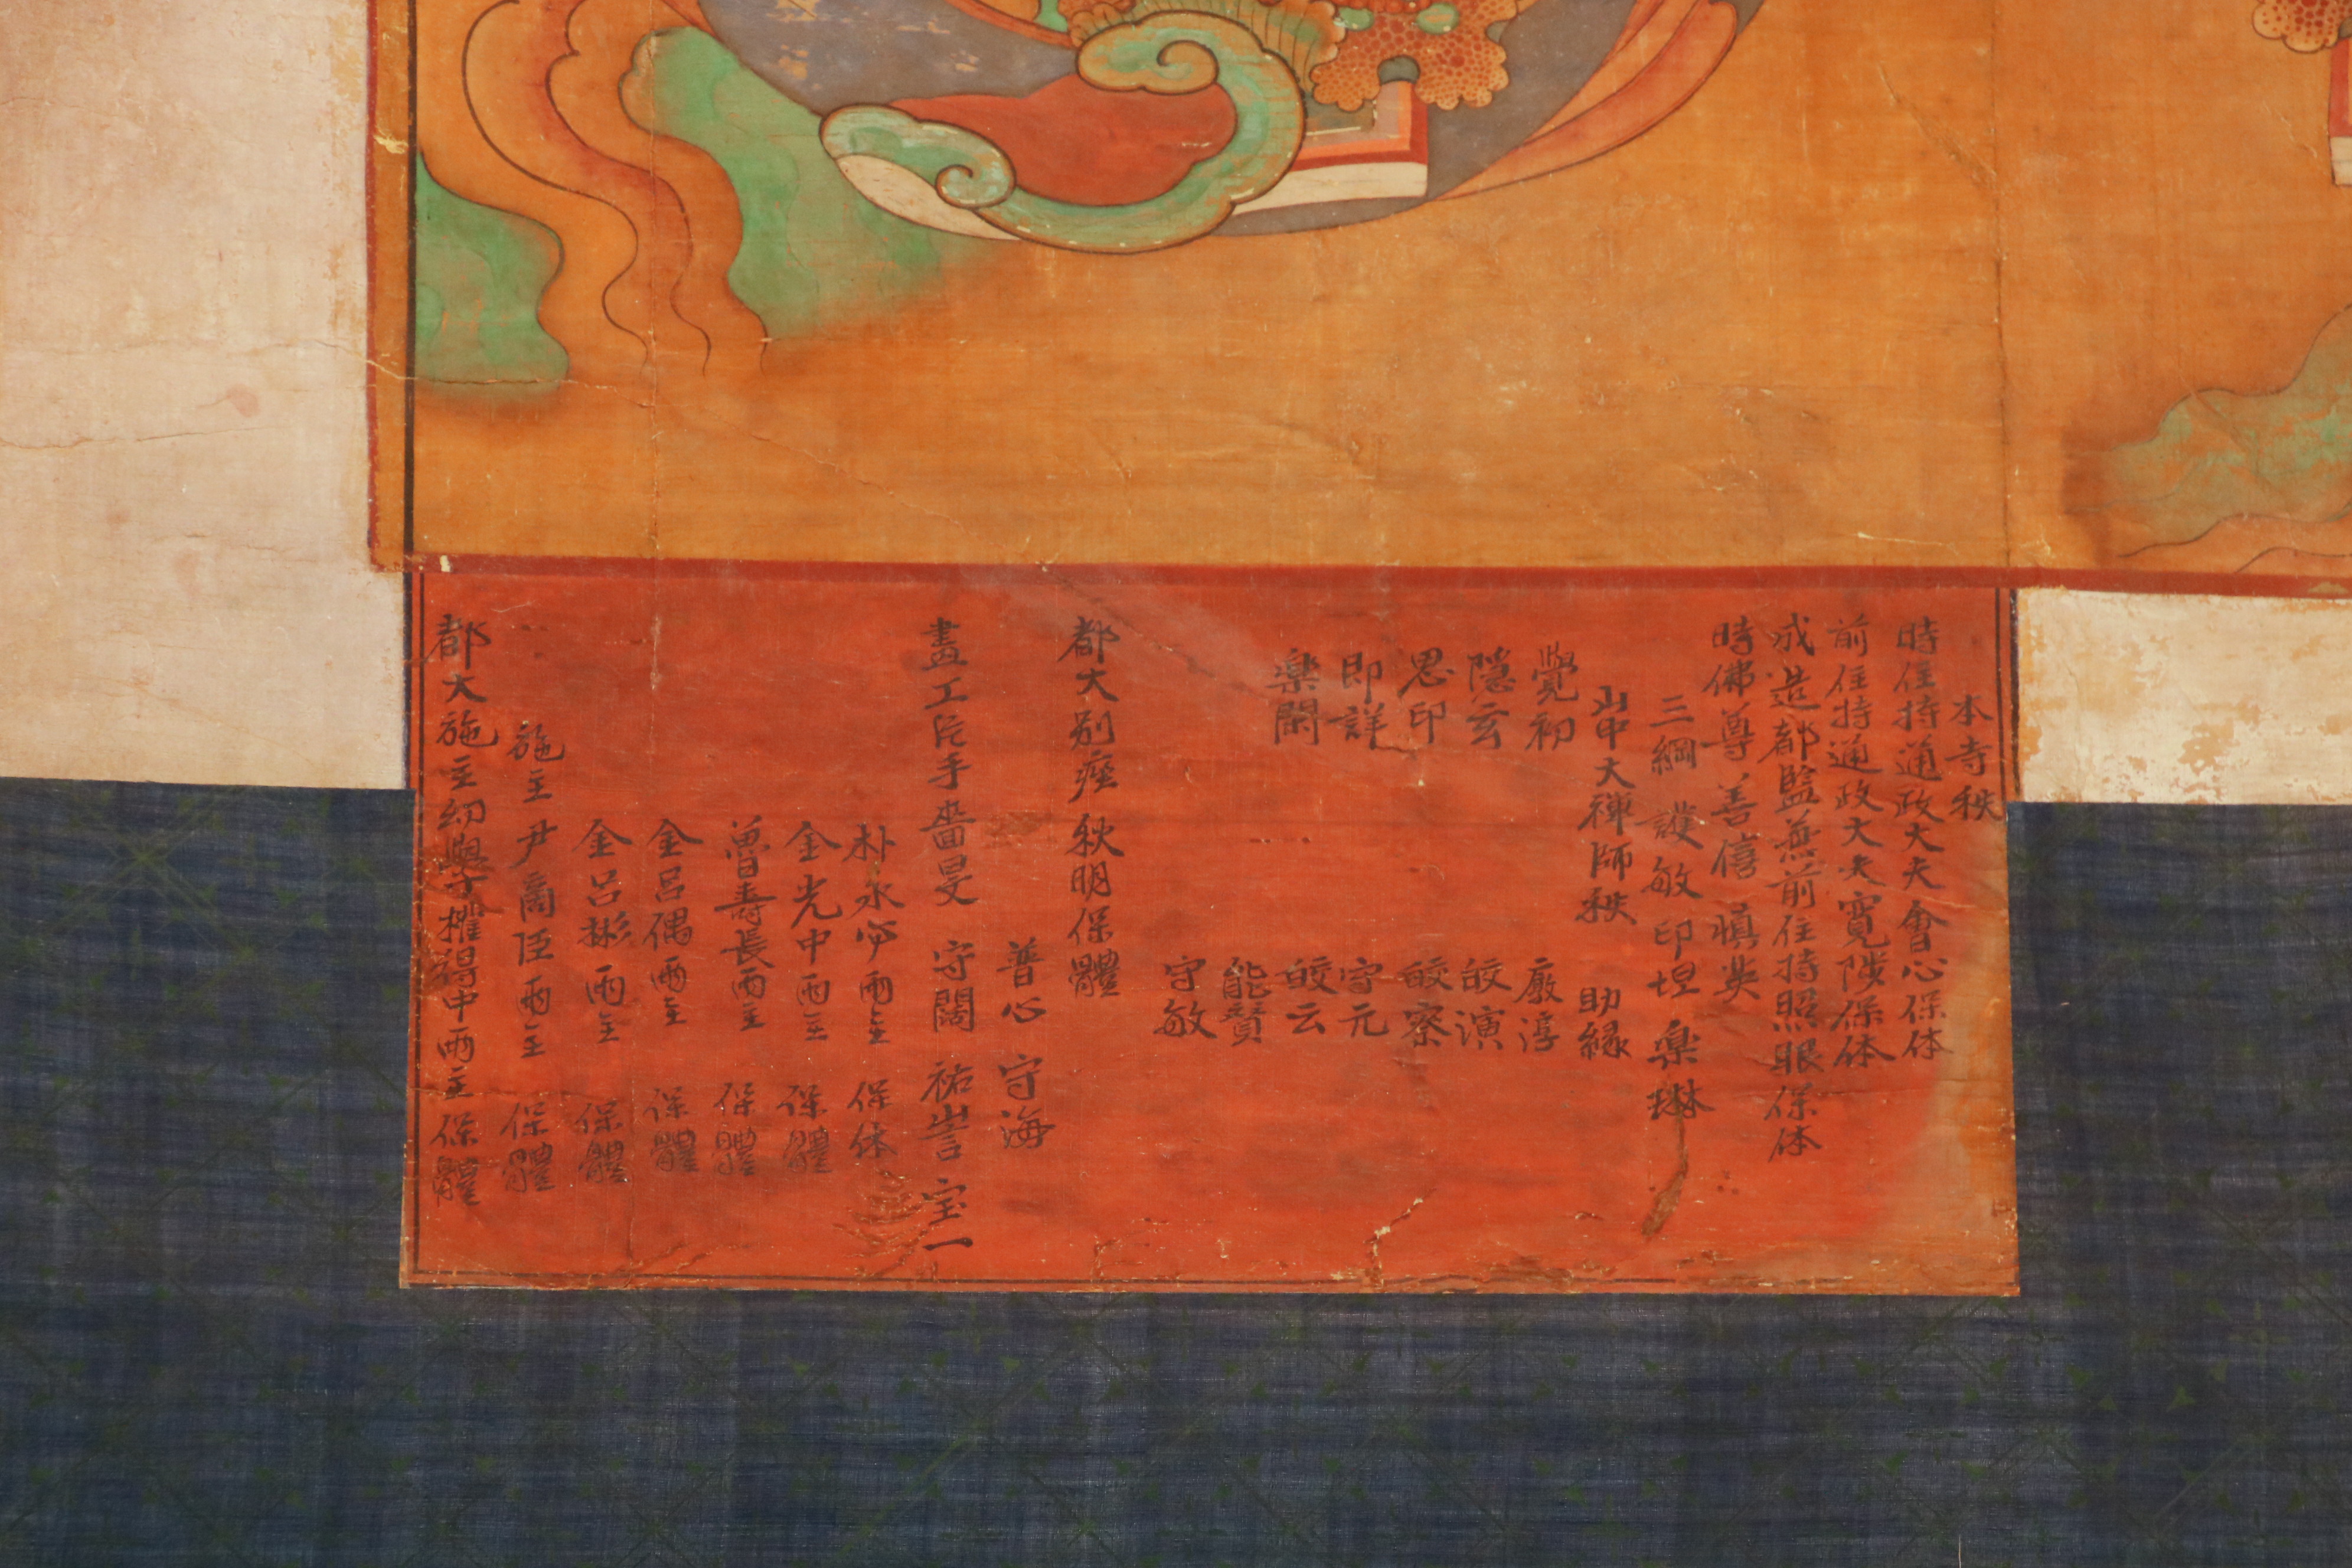 本寺秩
時住持通政大夫會心保体
前住持通政大夫寬陟保体
成造都監兼前住持照眼保体
時佛尊善僖 愼英
三綱 護敏 印坦 楽琳
山中大禪師秩 助縁
覺初 廠淳
隠玄 皎演
思印 皎察
即詳 守元
楽閑 皎云
能贇
守敏
都大別座 秋明保體
普心 守海
畫工片手嗇旻 守闊 祐訔 宝一
朴永必両主 保体
金光中両主 保體
曽壽長両主 保體
金呂偶両主 保體
金呂彬両主 保體
施主尹商臣両主 保體
都大施主幼學權得中両主保體